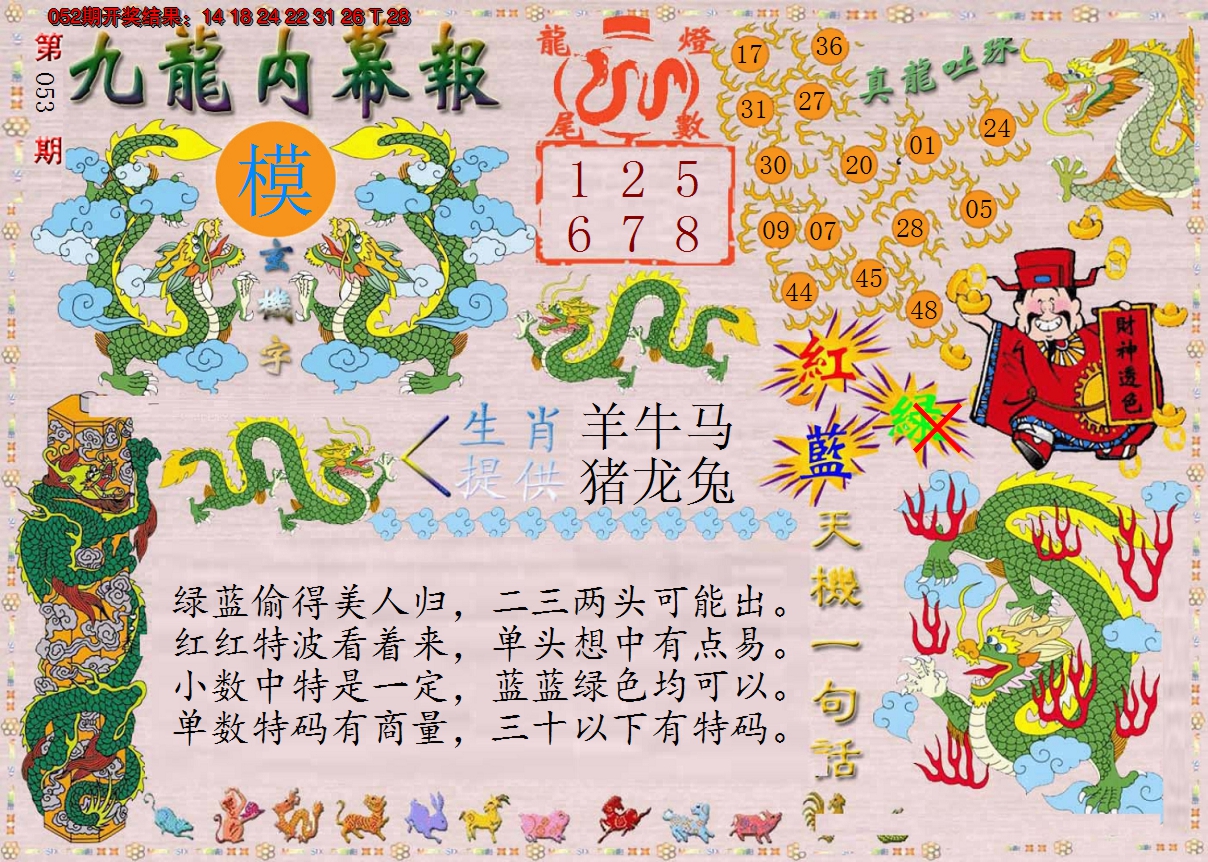 052期开奖结果：14 18 24 22 31 26 T 28
第053期
九龍内幕報
模
玄機字
龍燈
尾數
1 2 5
6 7 8
真龍吐珠
17
36
31
27
24
01
30
20
05
09
07
28
45
44
48
財神透色
紅
绿
藍
生肖 羊牛马
提供 猪龙兔
天機一句话
绿蓝偷得美人归，二三两头可能出。
红红特波看着来，单头想中有点易。
小数中特是一定，蓝蓝绿色均可以。
单数特码有商量，三十以下有特码。